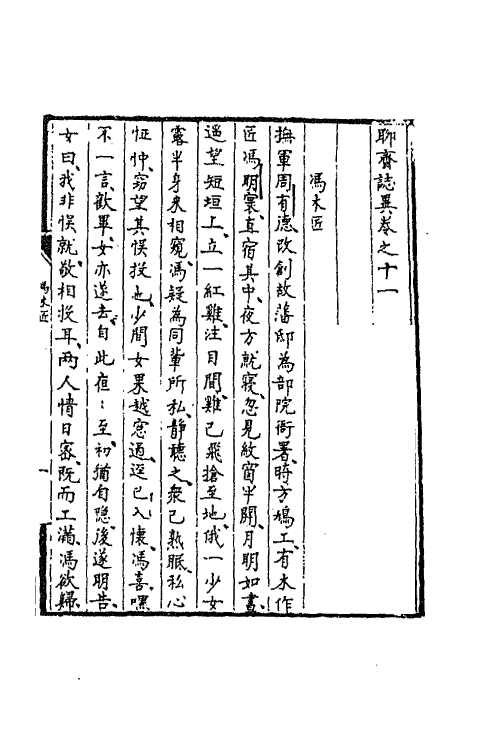 聊齋誌異卷之十一
馮木匠
撫軍周有德改創故藩邸為部院衙署時方鳩工有木作
匠馮明寰直宿其中夜方就寢忽見紋窗半開月明如晝
遥望短垣上立一紅雞注目間雞已飛搶至地俄一少女
露半身來相窺馮疑為同輩所私靜聽之衆已熟眠私心
怔忡竊望其悞投也少間女果越窓過逕已入懷馮喜嘿
不一言歡畢女亦遂去自此夜：至初猶自隐後遂明告
女曰我非悞就敬相投耳兩人情日密既而工滿馮欲歸
馮木匠
一